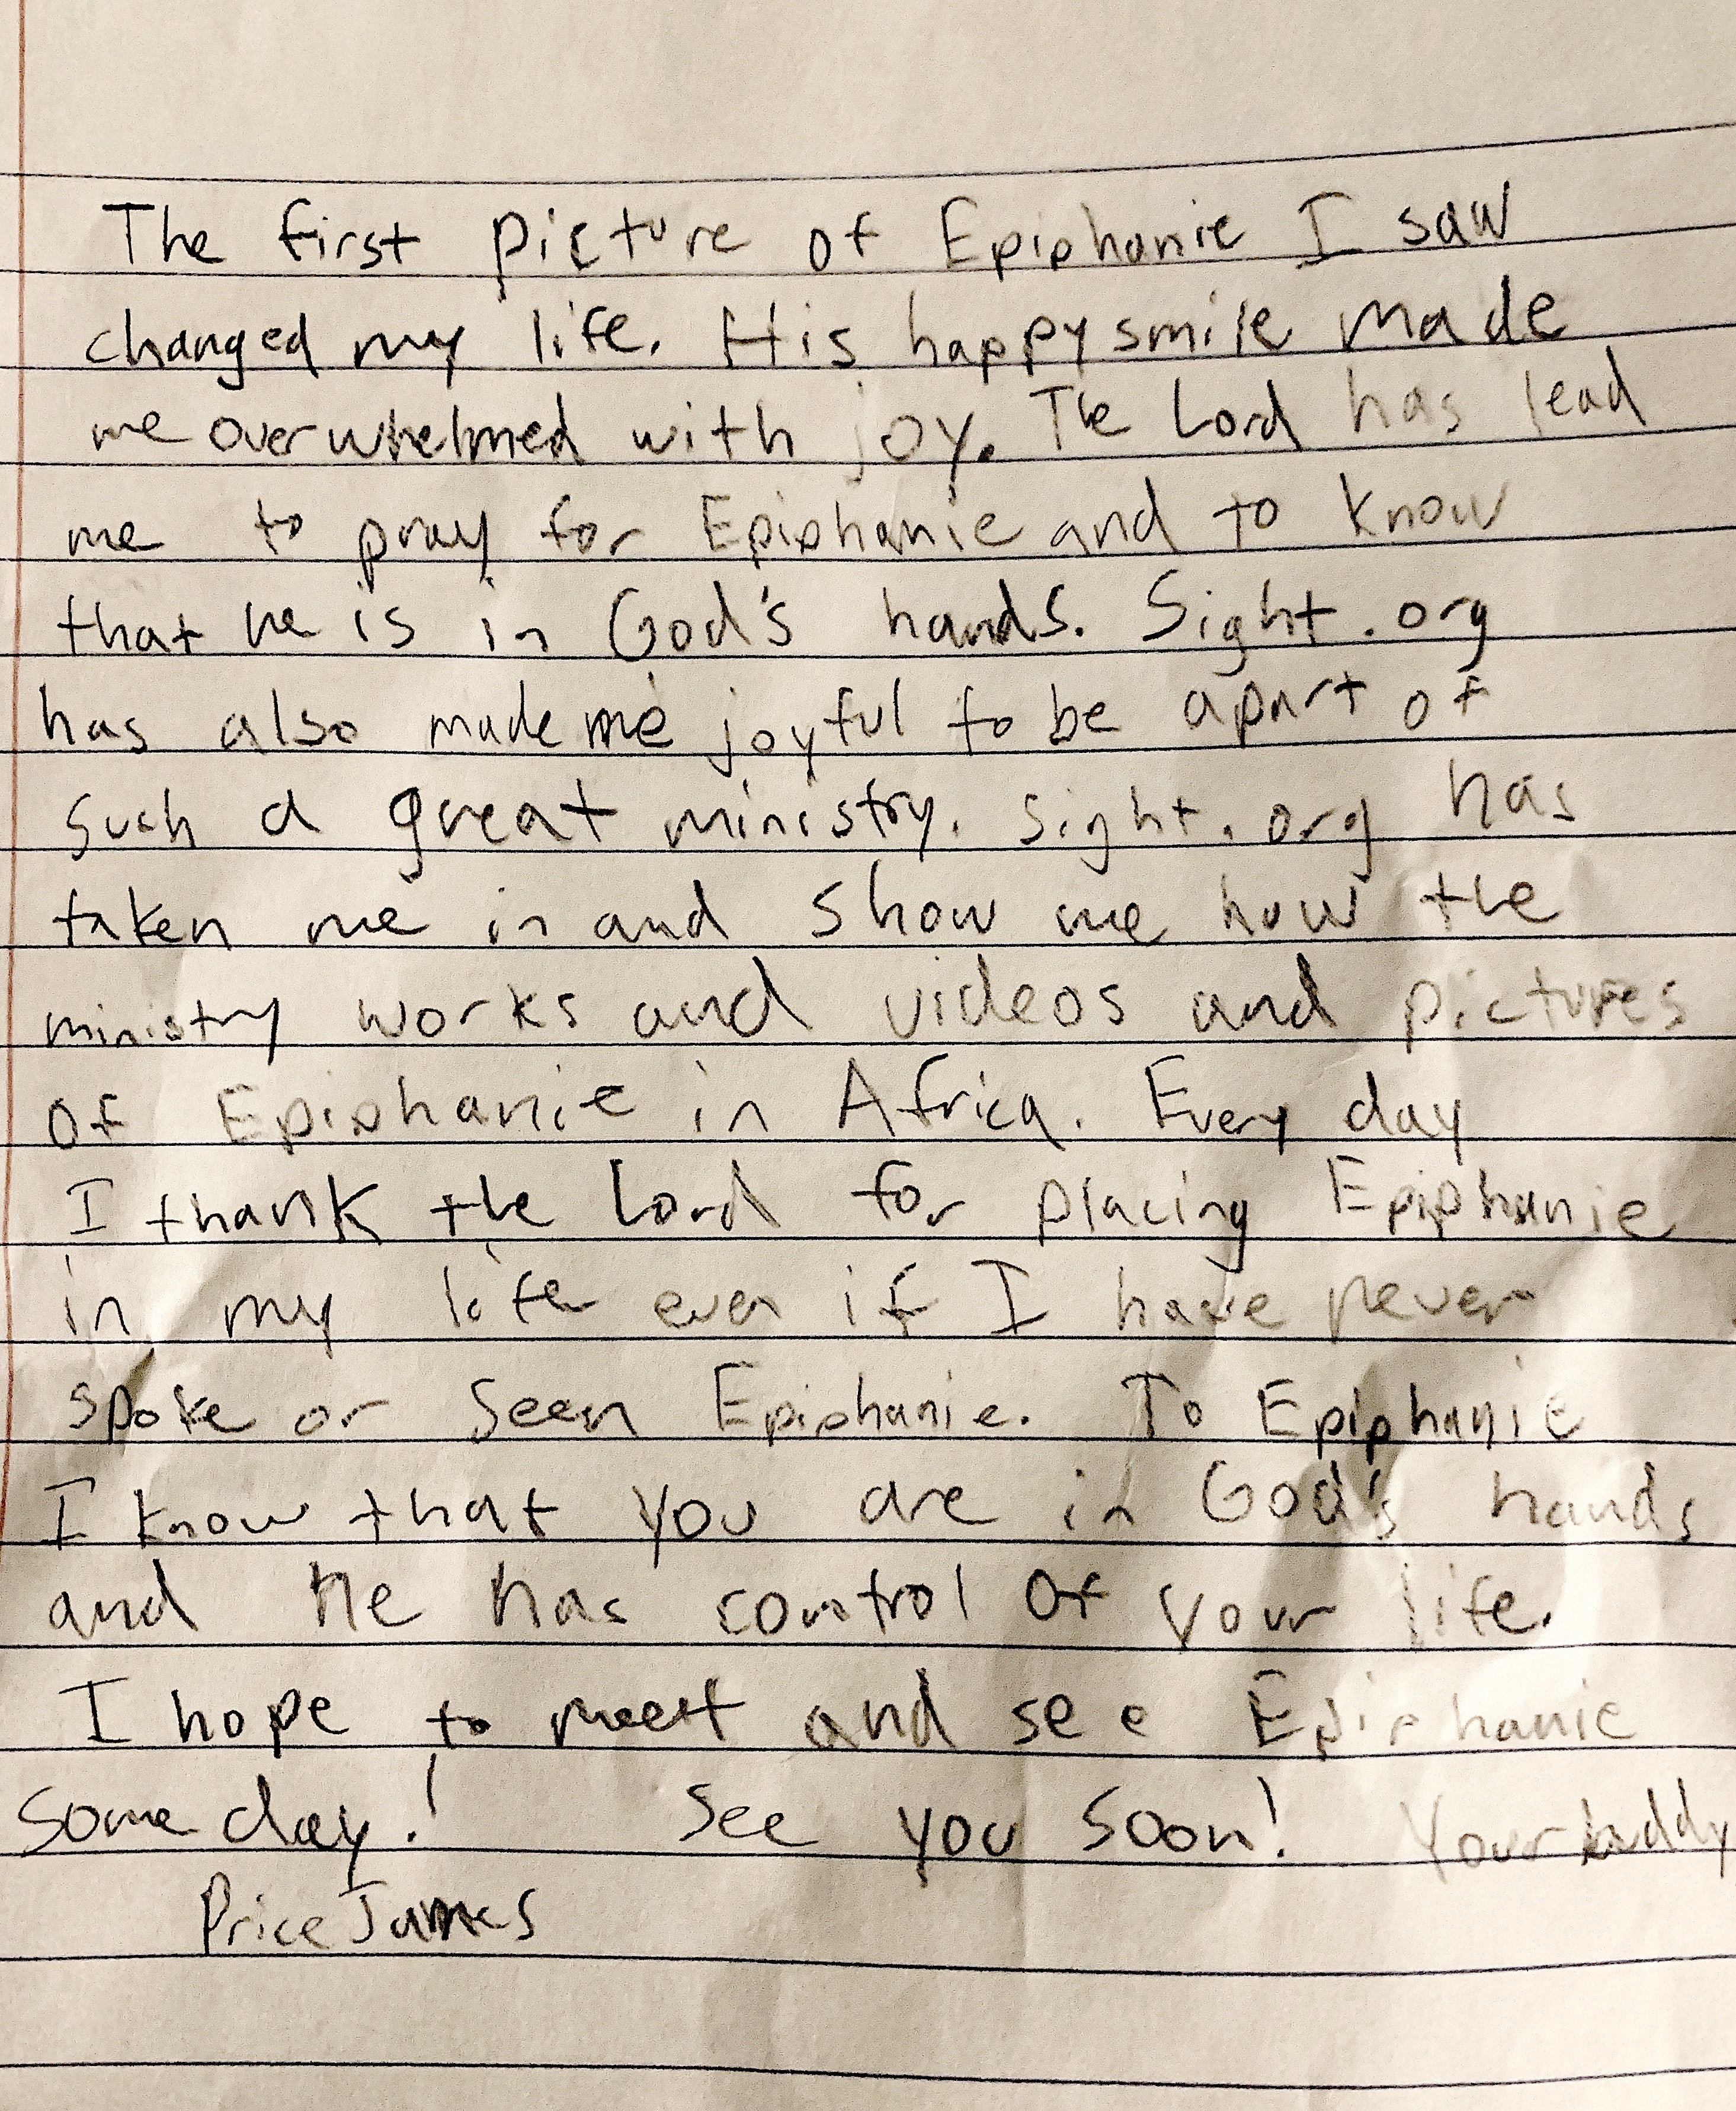 The first picture of Epiphanie I saw
changed my life. His happy smile made
me overwhelmed with joy. The Lord has lead
me to pray for Epiphanie and to know
that he is in God's hands. Sight.org
has also made me joyful to be apart of
such a great ministry. Sight.org has
taken me in and show me how the
ministry works and videos and pictures
of Epiphanie in Africa. Every day
I thank the Lord for placing Epiphanie
in my life even if I have never
spoke or seen Epiphanie. To Epiphanie
I know that you are in God's hands
and He has control of your life.
I hope to meet and see Epiphanie
some day! See you soon! Your buddy
Price James